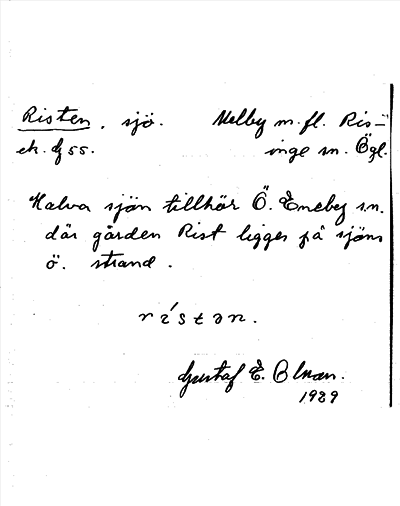 Risten, sjö. Melby m. fl. Ris-
ek. bj 55. inge sn. Ögl.
Halva sjön tillhör Ö. Eneby sn.
där gården Rist ligger på sjöns
ö. strand.
rístən.
Gustaf E. Blman.
1929